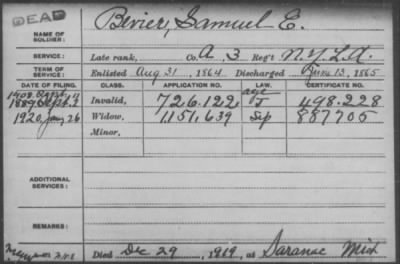 DEAD
NAME OF SOLDIER: Bevier, Samuel E.
SERVICE: Late rank, Co. A, 3 Reg't N.Y.L.A.
TERM OF SERVICE: Enlisted Aug 31, 1864 Discharged June 13, 1865
DATE OF FILING. CLASS. APPLICATION NO. LAW. CERTIFICATE NO.
1889 Invalid, 726.122 498.228
1920 Jan 26 Widow, 1151.639 887705
Minor,
ADDITIONAL SERVICES:
REMARKS:
Died Dec 29, 1919, at Saranac Mich